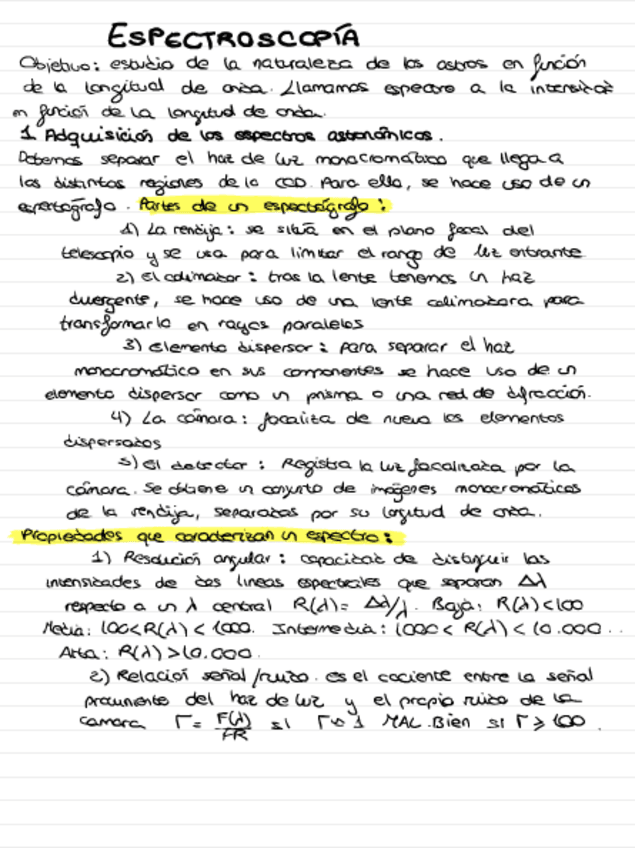 ESPECTROSCOPÍA
Objetivo: estudio de la naturaleza de los astros en función
de la longitud de onda. Llamamos espectro a la intensidad
en función de la longitud de onda.
1 Adquisición de los espectros astronómicos.
Debemos separar el haz de luz monocromático que llega a
las distintas regiones de la CCD. Para ello, se hace uso de un
espectógrafo. Partes de un espectógrafo:
1) La rendija: se sitúa en el plano focal del
telescopio y se usa para limitar el rango de luz entrante
2) el colimador: tras la lente tenemos un haz
divergente, se hace uso de una lente colimadora para
transformarlo en rayos paralelos
3) Elemento dispersor: para separar el haz
monocromático en sus componentes se hace uso de un
elemento dispersor como un prisma o una red de difracción.
4) La cámara: focaliza de nuevo los elementos
dispersados
5) el detector: Registra la luz focalizada por la
cámara. Se obtiene un conjunto de imágenes monocromáticas
de la rendija, separadas por su longitud de onda.
Propiedades que caracterizan un espectro:
1) Resolución angular: capacidad de distinguir las
intensidades de dos líneas espectrales que separan Δλ
respecto a un λ central R(λ)= Δλ/λ. Baja: R(λ)<100
Media: 100<R(λ)<1000. Intermedia: 1000< R(λ)<10.000..
Alta: R(λ)>10.000.
2) Relación señal/ruido. es el cociente entre la señal
proveniente del haz de luz y el propio ruido de la
camara Γ= F(λ)/FR si Γ∼1 MAL. Bien si Γ≥100.